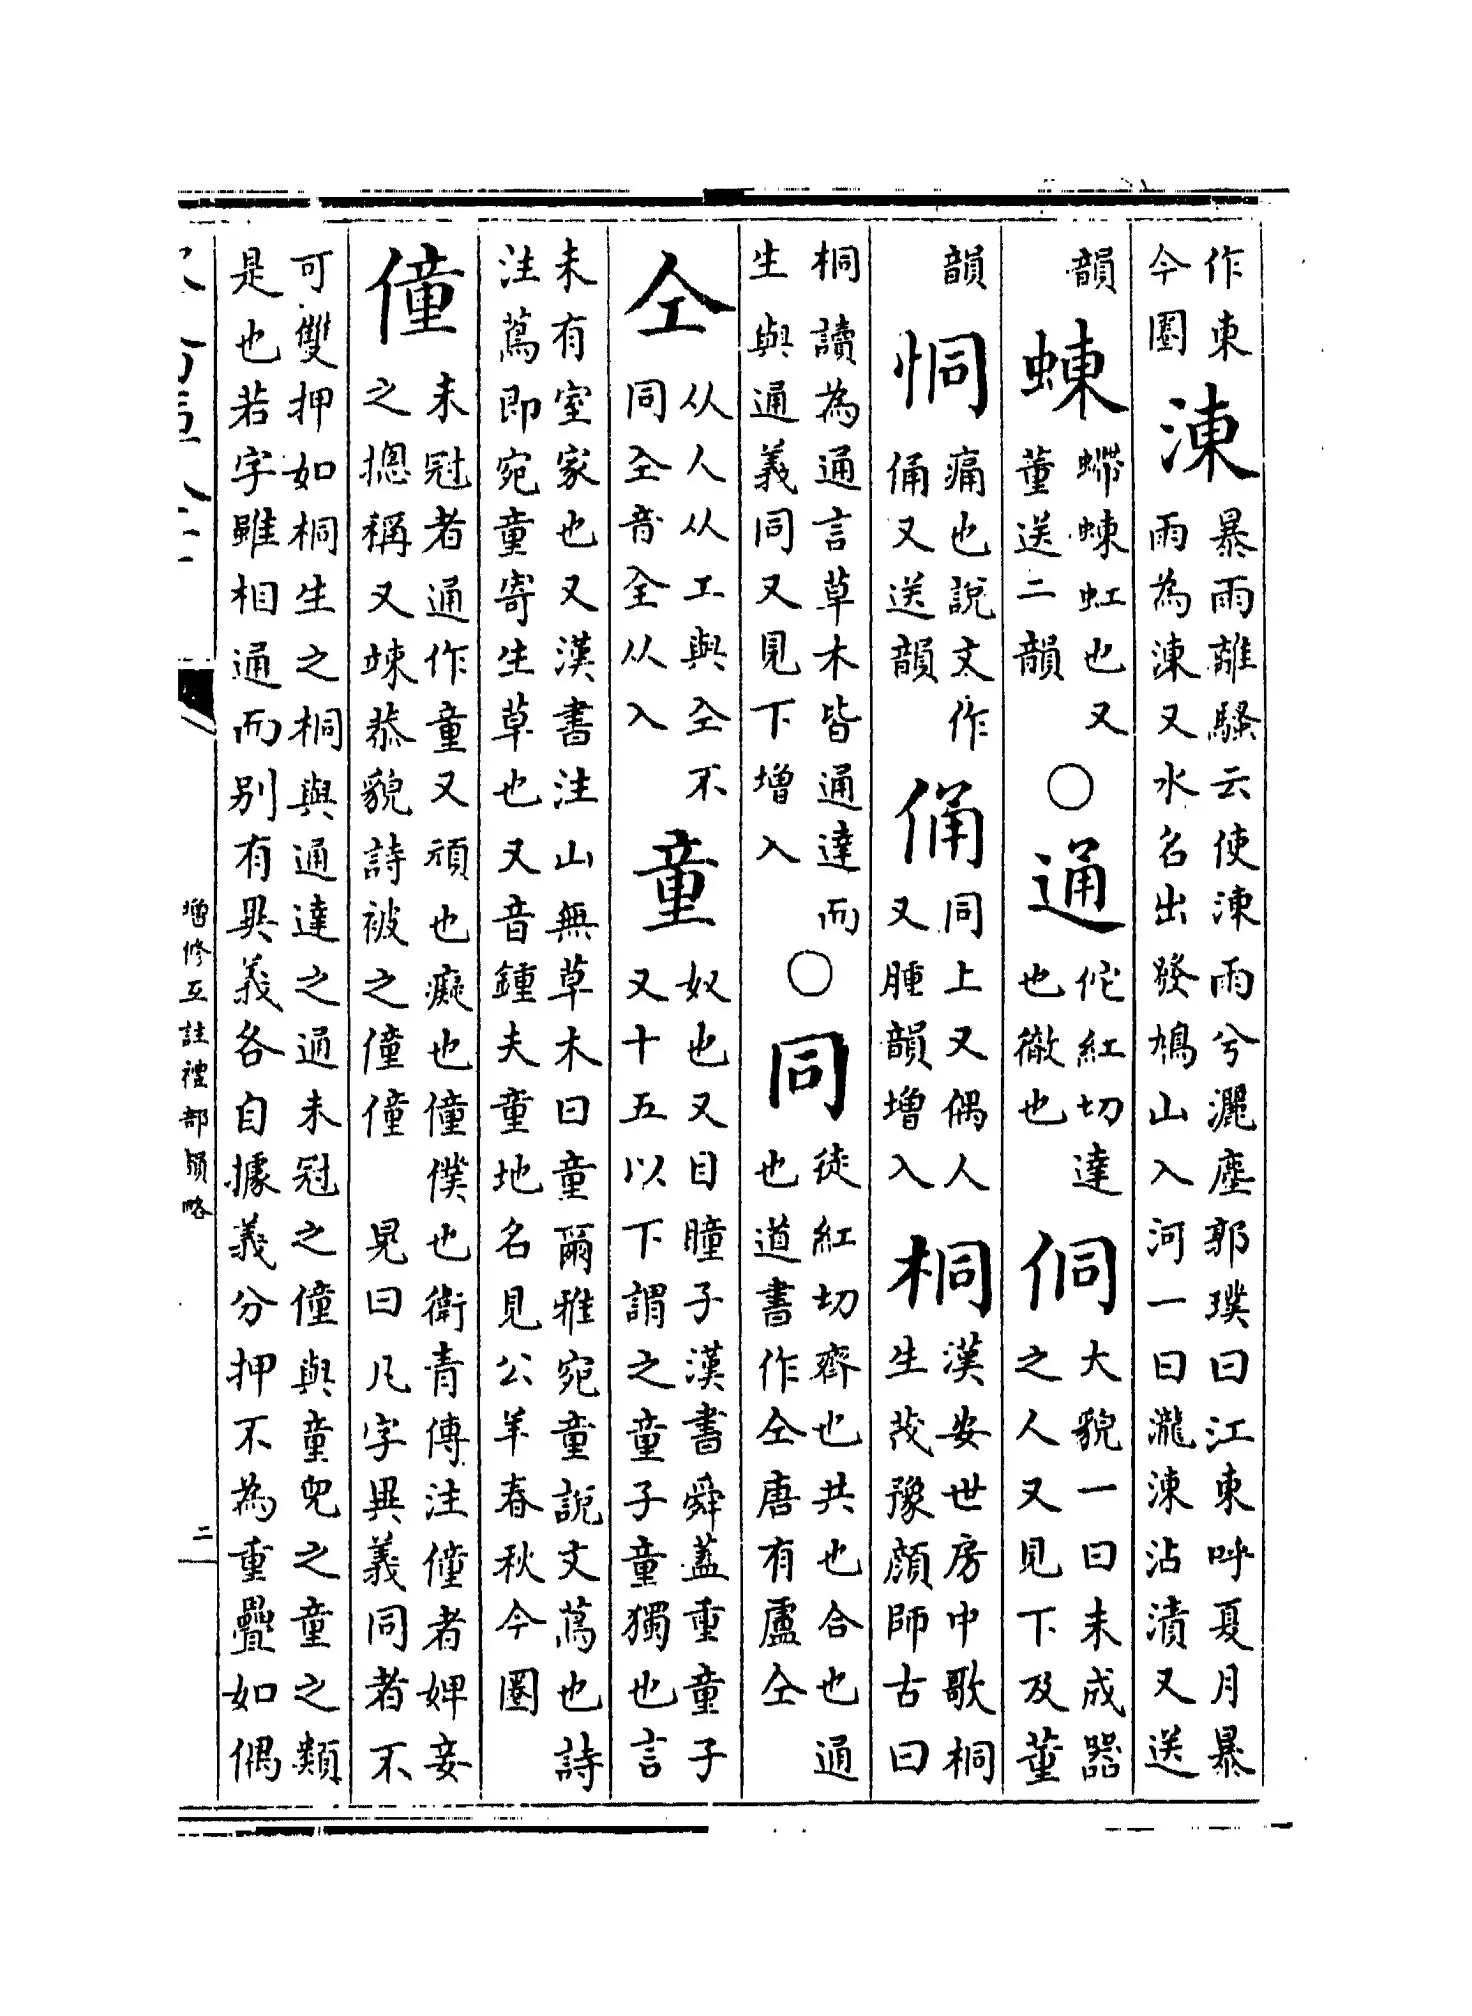 作東今圈涷暴雨離騷云使涷雨兮灑塵郭璞曰江東呼夏月暴雨為涷又水名出發鳩山入河一曰瀧涷沾漬又送
韻蝀螮蝀虹也又董送二韻○通佗紅切達也徹也侗大貌一曰未成器之人又見下及董
韻恫痛也說文作俑又送韻俑同上又偶人又腫韻增入桐漢安世房中歌桐生茂豫顔師古曰
桐讀為通言草木皆通達而生與通義同又見下增入○同徒紅切齊也共也合也通也道書作仝唐有盧仝
仝从人从工與仝不同仝音全从入童奴也又目瞳子漢書舜蓋重童子又十五以下謂之童子童獨也言
未有室家也又漢書注山無草木曰童爾雅宛童說文蔦也詩注蔦即宛童寄生草也又音鍾夫童地名見公羊春秋今圈
僮未冠者通作童又頑也癡也僮僕也衛青傳注僮者婢妾之摠稱又竦恭貌詩被之僮僮 晃曰凡字異義同者不
可雙押如桐生之桐與通達之通未冠之僮與童兒之童之類是也若字雖相通而别有異義各自據義分押不為重疊如偶
增修互註禮部韻略 二